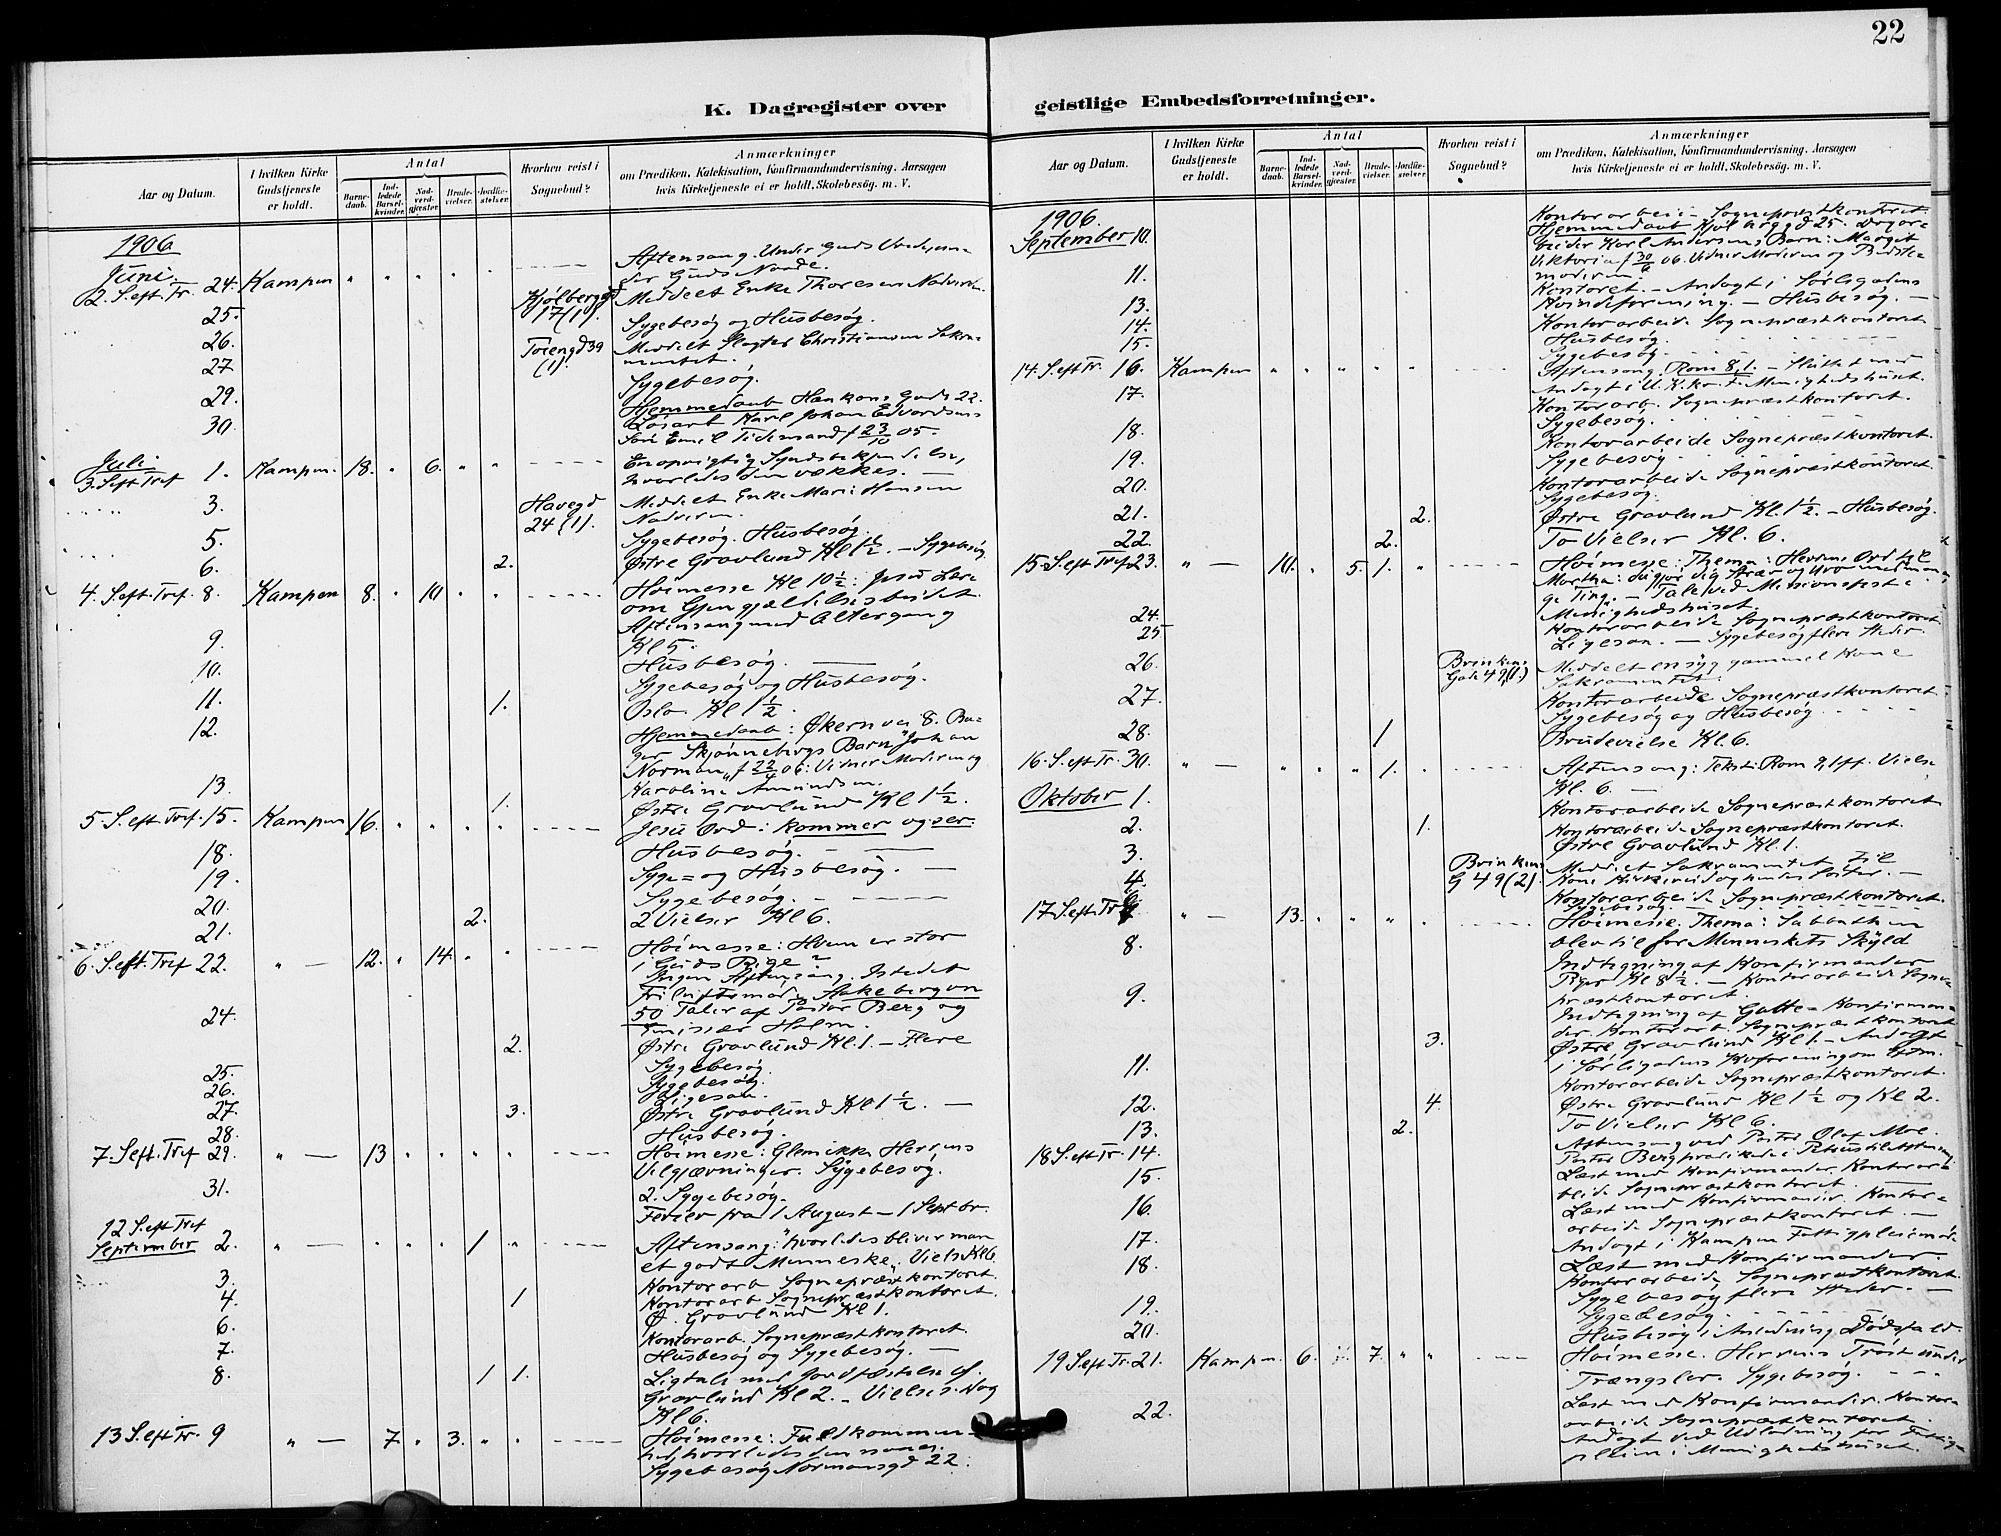 22
K. Dagregister over geistlige Embedsforretninger.
Aar og Datum.
I hvilken Kirke Gudstjeneste er holdt.
Antal
Barne-daab.
Ind-ledede Barsel-kvinder.
Nad-verd-gjæster.
Brude-vielser.
Jordfæ-stelser.
Hvorhen reist i Sognebud?
Anmærkninger
om Prædiken, Katekisation, Konfirmandundervisning, Aarsagen
hvis Kirketjeneste ei er holdt, Skolebesög. m. V.
1906
Juni
2. S. eft. Tr. 24. Kampen " " " " " Aftensang. Under Guds Vrede, un-
der Guds Naade.
25. Kjølberggd 17 (1). Meddelt Enke Thoresen Nadverden.
Sygebesøg og Husbesøg.
26. Toiengd 39 (1). Meddelt Slagter Christiansen Sakra-
mentet.
27
Sygebesøg.
29. Hjemmedaab Haakons Gade 22.
Karl Johan Edvardsens
30. Søn Emil Tidemand f 23/10 05.
Juli
3. S. eft Tref 1. Kampen. 18. " 6. " " Enoprigtig Syndsbekjendelse,
hvorledes den vækkes. —
3. Havegd 24 (1). Meddelt Enke Marie Hansen
Nadveren.
5. Sygebesøg. Husbesøg.
6. 2. Østre Gravlund Kl 1 1/2. — Sygebesøg.
4. S. eft. Tref. 8. Kampen 8. " 10 " " Høimesse Kl 10 1/2: Jesu Lære
om Gjengjældelsesbudet.
Aftensang med Altergang
9. Kl 5.
Husbesøg.
10. Sygebesøg og Husbesøg.
11. 1. Oslo Kl 1 1/2.
12. Hjemmedaab: Økernvei 8. Ba-
ger Skjønnebergs Barn "Johan
Norman" f 22/4 06: Vidner Moderen og
13. Karoline Amundsen.
1. Østre Gravlund Kl 1 1/2.
5. S. eft. Tref. 15. Kampen 16. " " " " Jesu Ord: kommer og ser.
18. Husbesøg.
19. Syge= og Husbesøg. —
20. Sygebesøg.
21. 2. 2 Vielser Kl 6.
6. S. eft. Tref 22. " — 12. " 14. " " Høimesse: Hvem er stor
i Guds Rige?
Ingen Aftensang. Istedet
Friluftsmøde Hakebergen
24. 50 Taler af Pastor Berg og
Emissær Holm.
2. Østre Gravlund Kl. 1. — Flere
Sygebesøg.
25. Sygebesøg.
26. Ligesaa.
27. 3. Østre Gravlund Kl 1 1/2. —
28. Husbesøg.
7. S. eft. Tref 29. " — 13 " " " " Høimesse: Glem ikke Herrens
Velgjærninger. Sygebesøg.
31. 2. Sygebesøg.
Ferier fra 1 August — 1 Septbr.
12 S. eft Tref
September 2. " — " " " 1 " Aftensang: "hvorledes bliver man
et godt Menneske". Vielse Kl 6.
3. Kontorarb. Sognepræstkontoret.
4. 1 Kontorarb. Sognepræstkontoret.
Ø. Gravlund Kl 1.
6. Kontorarb. Sognepræstkontoret.
7. Husbesøg og Sygebesøg. —
8. 1 1. Ligtale med Jordfæstelse Ø.
Gravlund Kl 2. — Vielse
Kl 6.
13 S. eft Tr. 9 " — 7. " 3. " " Høimesse: Fuldkommen-
hed, hvorledes den naaes.
Sygebesøg Normansgd 22.
Aar og Datum.
I hvilken Kirke Gudstjeneste er holdt.
Antal
Barne-daab.
Ind-ledede Barsel-kvinder.
Nad-verd-gjæster.
Brude-vielser.
Jordfæ-stelser.
Hvorhen reist i Sognebud?
Anmærkninger
om Prædiken, Katekisation, Konfirmandundervisning, Aarsagen
hvis Kirketjeneste ei er holdt, Skolebesög. m. V.
1906.
September 10. Kontorarbeide Sognepræstkontoret.
Hjemmedaab Kjølberggd 25. Dagar-
beider Karl Andersens Barn: Margit
Viktoria f 30/6 06. Vidner Moderen og Bedste-
moderen.
11. Kontoret. — Andagt i Sørligadens
Kvindeforening. — Husbesøg. —
13. Kontorarbeide Sognepræstkontoret.
14. Husbesøg.
15. Sygebesøg.
14. S. eft Tr. 16. Kampen " " " " " Aftensang. Rom 8,1. — Sluttet med
Andagt i Menighedshuset.
17. Kontorarb. Sognepræstkontoret.
Sygebesøg.
18. Kontorarbeide Sognepræstkontoret.
Sygebesøg
19. Kontorarbeide Sognepræstkontoret.
20. Sygebesøg.
21. 2. Østre Gravlund Kl. 1 1/2. — Husbesøg.
22. 2. To Vielser Kl. 6.
15. S. eft Tref 23. " — 10. " 5. 1. " Høimesse: Thema: Herrens Ord til
Martha: du gjør dig Stræv og Uro med mange
Ting. — Tale ved Missionsfest i
Menighedshuset.
24. Kontorarbeide Sognepræstkontoret.
25 Ligesaa. — Sygebesøg flere Steder.
26. Brinkens Gade 49 (1.) Meddelt en syg gammel Kone
Sakramentet.
27. Kontorarbeide Sognepræstkontoret.
Sygebesøg og Husbesøg.
28. 1 Brudevielse Kl. 6.
16. S. eft Tr. 30. " — " " " 1. " Aftensang: Tekst: Rom 9,1ff. Vielse
Kl. 6. —
Oktober 1. Kontorarbeide Sognepræstkontoret.
2. 1. Kontorarbeide Sognepræstkontoret.
Østre Gravlund Kl. 1.
3. Brinkens G 49 (2). Meddelt Sakramentet til
Kone
4. Kontorarbeide Sognepræstkontoret.
6. Sygebesøg.
17 S. eft Tr 7 " — 13. " " " " Høimesse. Thema: Sabbathen
blev til for Menneskets Skyld
8. Indtegning af Konfirmander
Piger Kl 8 1/2. — Kontorarbeide Sogne-
præstkontoret.
9. Indtegning af Gutte= Konfirman-
der. Kontorarb. Sognepræstkontoret
3. Østre Gravlund Kl 1. — Andagt
i Sørligadens Kvforening
11. Kontorarbeide Sognepræstkontoret.
12. 4. Østre Gravlund Kl 1 1/2 og Kl 2.
13. 2. To Vielser Kl 6.
18 S. eft Tr. 14. Aftensang ved Pastor Olaf Moe.
Pastor Berg prædikede i
15. Læst med Konfirmander. Kontorar-
beide Sognepræstkontoret.
16. Læst med Konfirmander. Kontor-
arbeide Sognepræstkontoret. —
17. Andagt i Kampen
Læst med Konfirmander.
18. Kontorarbeide Sognepræstkontoret.
Sygebesøg flere Steder. —
19. Sygebesøg.
20. Husbesøg i Anledning Dødsfald.
19 S. eft Tr. 21. Kampen. 6. " 7. " " Høimesse. Herrens Trøst under
Trængsler. Sygebesøg.
22. Læst med Konfirmander. Kontor-
arbeide Sognepræstkontoret.
Andagt ved Udlodning for
i Menighedshuset.